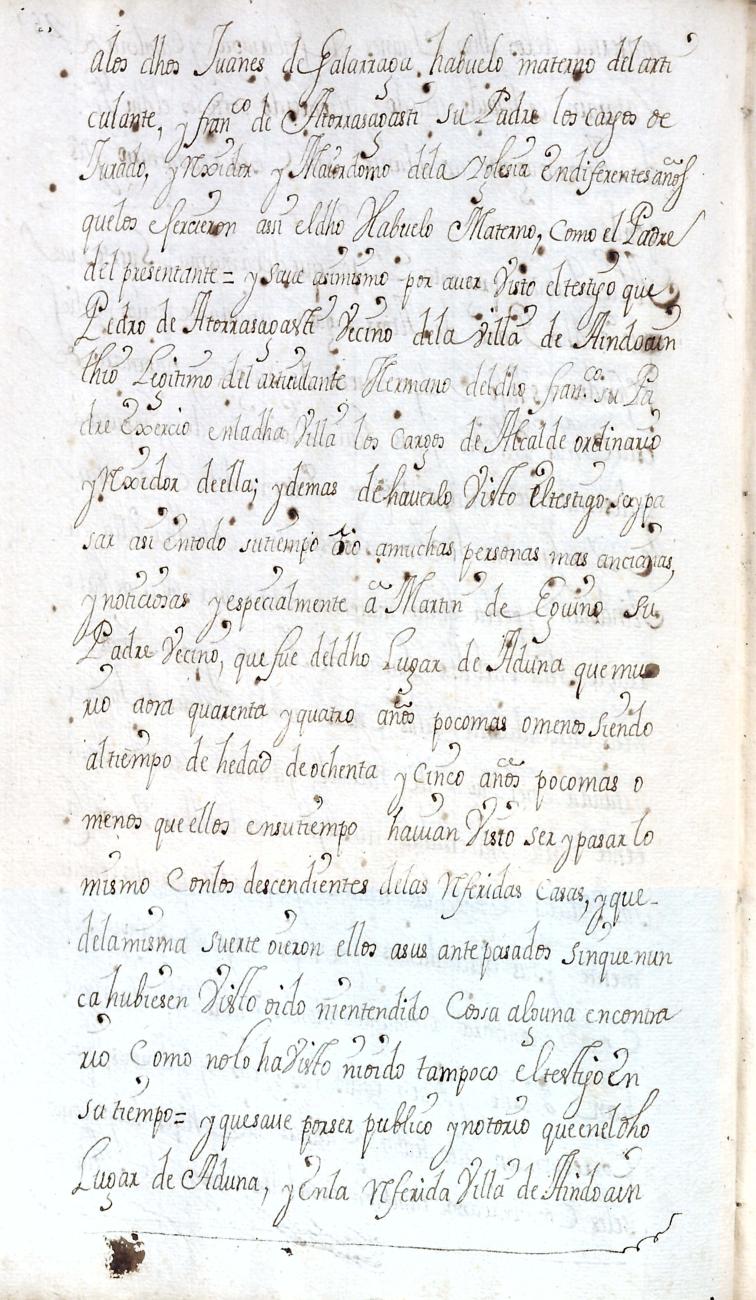 alos dhos Juanes de Galarraga habuelo materno del arti
culante, y fran.co de Atorrasagasti su Padre los cargos de
Jurado, y Rexidor y Maiordomo dela Yglesia en diferentes años
que los esercieron assi el dho Habuelo Materno, Como el Padre
del presentante = y saue asimismo por auer Visto el testigo que
Pedro de Atorrasagasti Vecino dela Villa de Aindoain
thio Legitimo del articulante Hermano del dho fran.co su Pa
dre Exercio enla dha Villa los Cargos de Alcalde ordinario
y Rexidor de ella; y demas de hauerlo Visto el testigo ser y pa
sar asi en todo su tiempo oio a muchas personas mas ancianas,
y noticiosas y especialmente a Martin de Eguino su
Padre Vecino, que fue del dho Lugar de Aduna que mu
rio aora quarenta y quatro años poco mas o menos siendo
al tiempo de hedad de ochenta y Cinco años poco mas o
menos que ellos en su tiempo hauian Visto ser y pasar lo
mismo Con los descendientes de las Rferidas Casas, y que
dela misma suerte oieron ellos a sus antepasados sin que nun
ca hubiesen Visto oido ni entendido Cossa alguna en contra
rio Como no lo ha Visto ni oido tampoco el testigo En
su tiempo = y que saue por ser publico y notorio que en el dho
Lugar de Aduna, y En la Rferida Villa de Aindoain